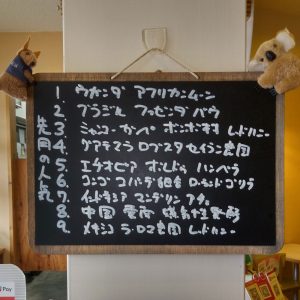 先月の人気
1. ウガンダ アフリカンムーン
2. ブラジル ファゼンダ バウ
3 ミャンマー
レッドハニー
4. グアテマラ ロブスタ セイラン農園
5. エチオピア ボレナ ハンベラ
6. コンゴ
ローランドゴリラ
7. インドネシア マンデリン アチェ
8. 中国 雲南
9. メキシコ ラ・ロマ農園 レッドハニー
Pay